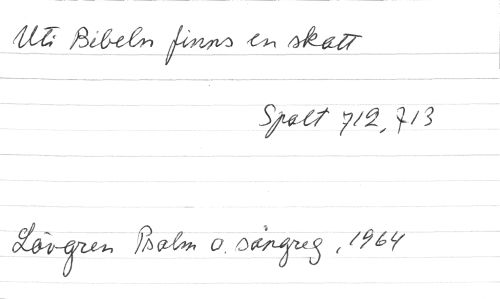 Uti Bibeln finns en skatt
Spalt 712, 713
Lövgren Psalm o. sångreg, 1964